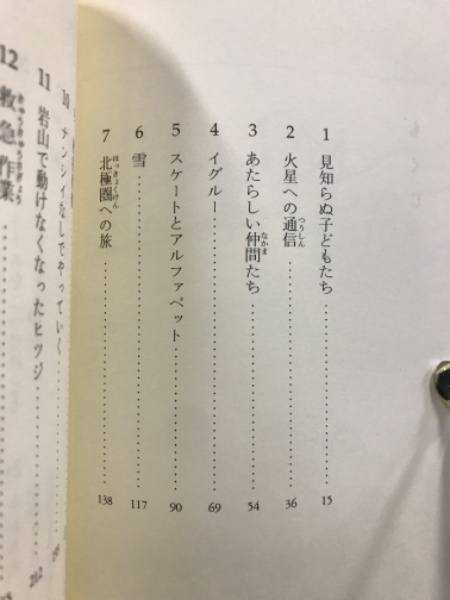 1 見知らぬ子どもたち……………………15
2 火星への通信……………………36
3 あたらしい仲間たち……………………54
4 イグルー……………………69
5 スケートとアルファベット……………………90
6 雪……………………117
7 北極圏への旅……………………138
10 ナンシイなしでやっていく
11 岩山で動けなくなったヒツジ
12 救急作業